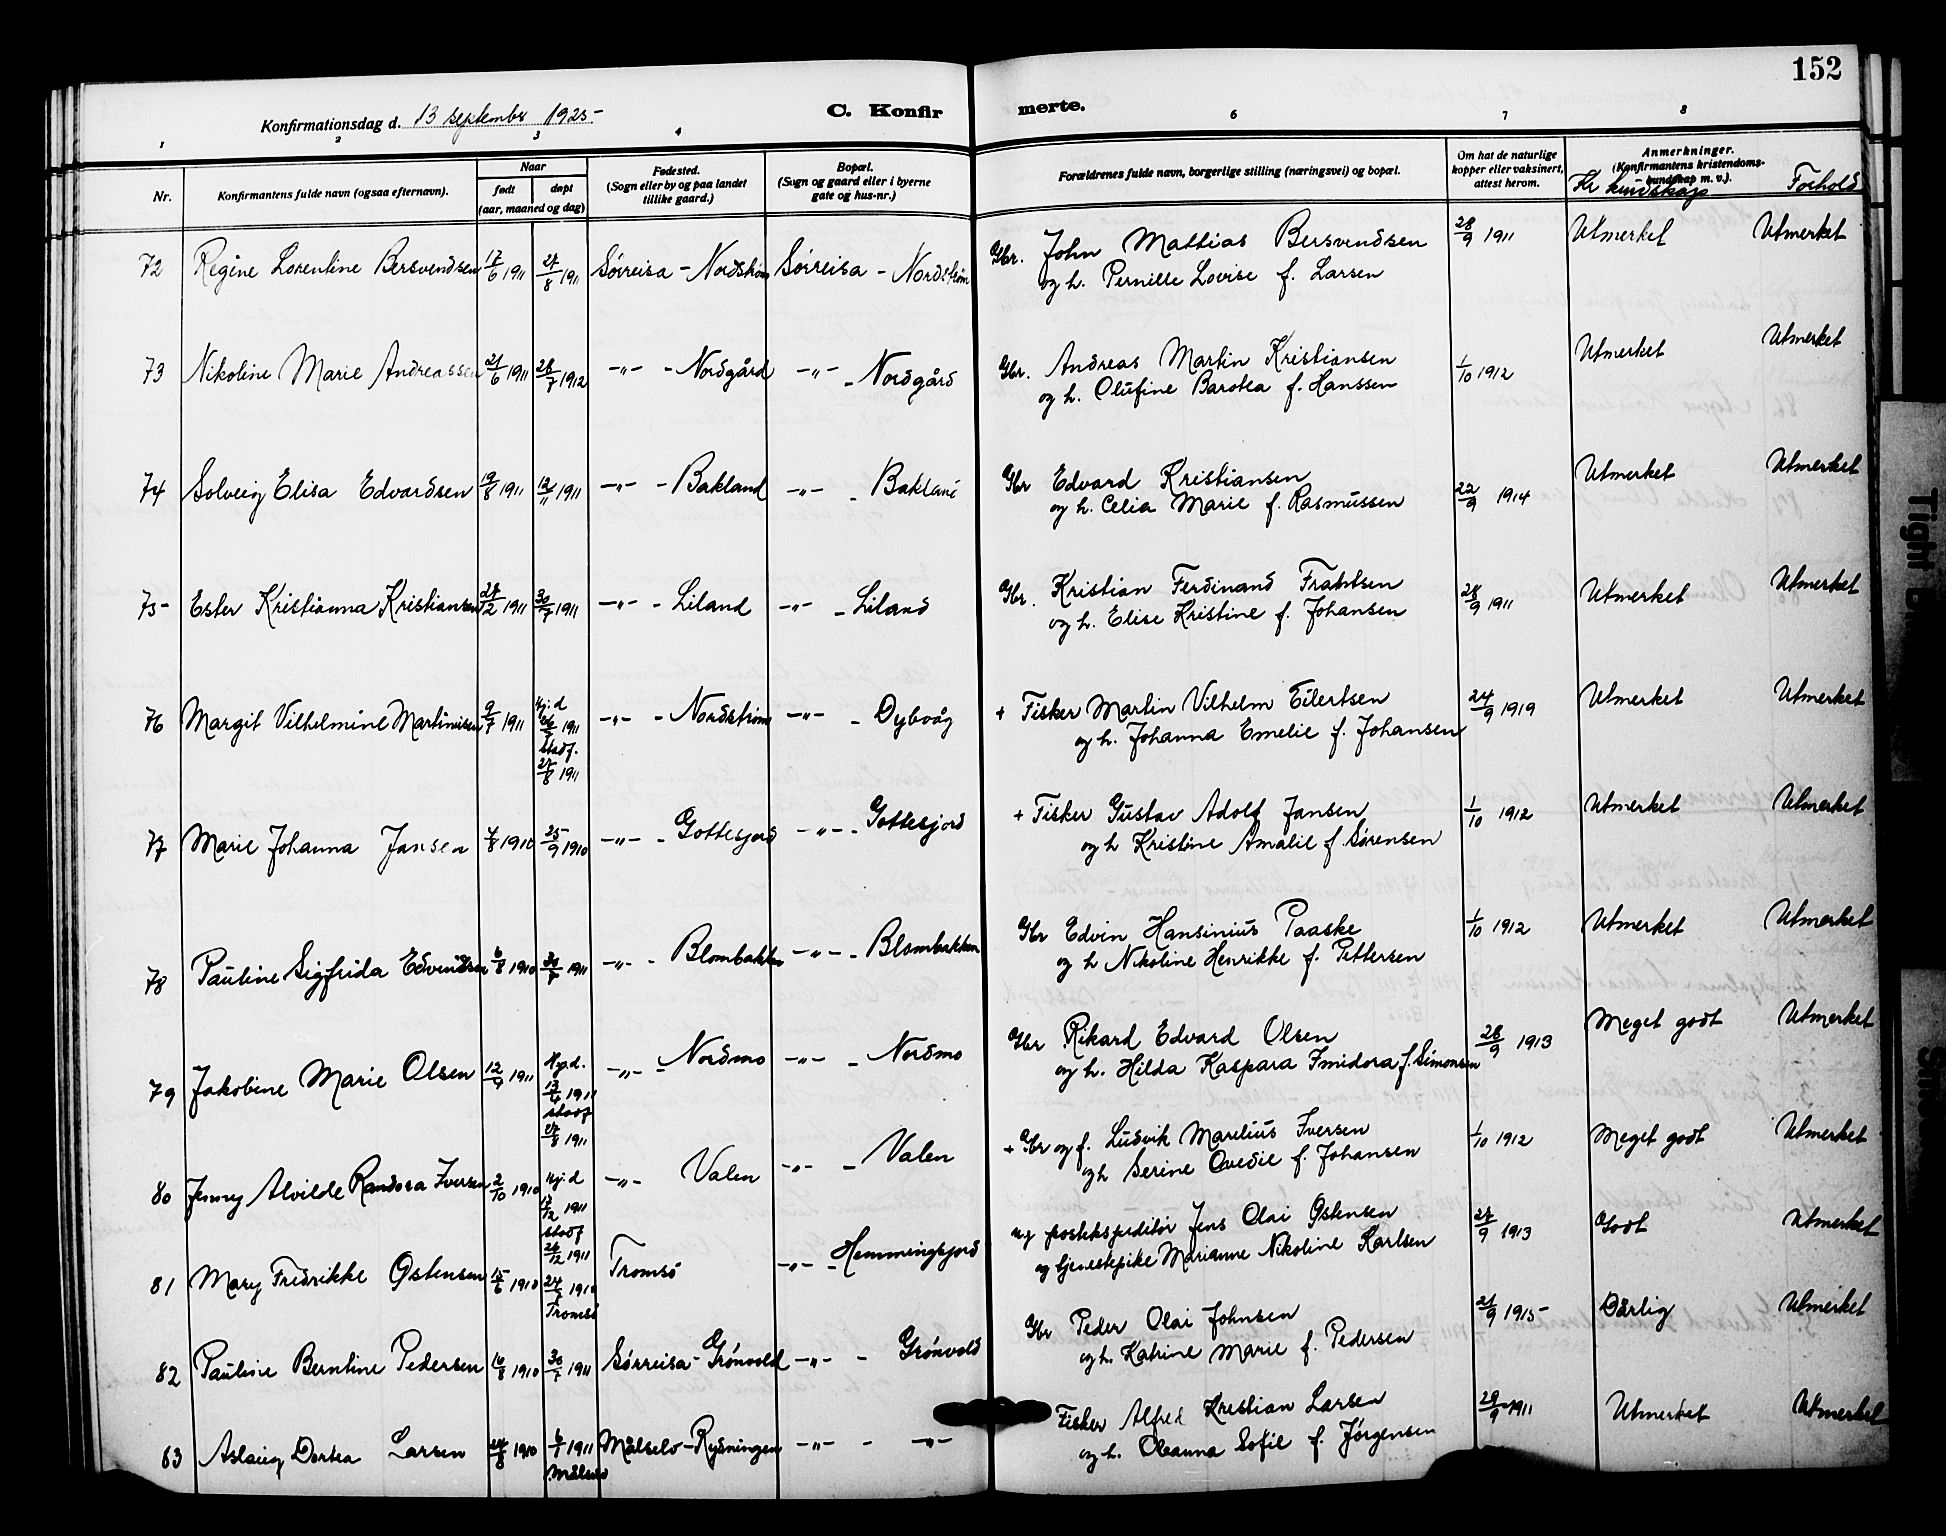 152
Konfirmationsdag d. 13 september 1925-
C. Konfir merte.
1 2 3 4 6 7 8
Nr.
Konfirmantens fulde navn (ogsaa efternavn).
Naar
født døpt
(aar, maaned og dag)
Fødested.
(Sogn eller by og paa landet
tillike gaard.)
Bopæl.
(Sogn og gaard eller i byerne
gate og hus-nr.)
Forældrenes fulde navn, borgerlige stilling (næringsvei) og bopæl.
Om hat de naturlige
kopper eller vaksinert,
attest herom.
Anmerkninger.
(Konfirmantens kristendoms-
kundskap m. v.).
Kr kundskap Forhold
72 Regine Lorentine Bersvendsen 17/6 1911 27/8 1911 Sørreisa - Nordstrøm Sørreisa - Nordstrøm Gbr. John Mattias Bersvendsen 28/9 1911 Utmerket Utmerket
og h. Pernille Lovise f. Larsen
73 Nikoline Marie Andreassen 21/6 1911 28/7 1912 -"- - Nordgård -"- - Nordgård Gbr. Andreas Martin Kristiansen 1/10 1912 Utmerket Utmerket
og h. Olufine Barotea f. Hanssen
74 Solveig Elisa Edvardsen 19/8 1911 12/11 1911 -"- - Bakland -"- - Bakland Gbr Edvard Kristiansen 22/9 1914 Utmerket Utmerket
og h. Celia Marie f. Rasmussen
75- Ester Kristianna Kristiansen 27/2 1911 30/7 1911 -"- - Liland -"- - Liland Gbr. Kristian Ferdinand Frantsen 28/9 1911 Utmerket Utmerket
og h. Elise Kristine f. Johansen
76 Margit Vilhelmine Martinisen 9/7 1911 Hj.d -"- - Nordstrøm -"- - Dybvåg + Fisker Martin Vilhelm Eilertsen 24/9 1919 Utmerket Utmerket
1911
stadf.
27/8 1911
og h. Johanna Emelie f. Johansen
77 Marie Johanna Jansen 4/8 1910 25/9 1910 -"- - Gottesjord -"- - Gottesjord + Fisker Gustav Adolf Jansen 1/10 1912 Utmerket Utmerket
og h Kristine Amalie f. Sørensen
78 Pauline Sigfrida Edvindsen 6/8 1910 30/7 1911 -"- - Blombakken -"- - Blombakken Gbr Edvin Hansinius Paaske 1/10 1912 Utmerket Utmerket
og h Nikoline Henrikke f. Pettersen
79 Jakobine Marie Olsen 12/9 1911 Hj.d. -"- - Nordmo -"- - Nordmo Gbr Rikard Edvard Olsen 28/9 1913 Meget godt Utmerket
1911
stadf
27/8 1911
og h. Hilda Kaspara Imidora f. Simonsen
80 Jenny Alvilde Randora Iversen 2/10 1910 Hj.d -"- Valen -"- - Valen + Gbr og f. Ludvik Marelius Iversen 1/10 1912 Meget godt Utmerket
1911
stadf
26/12 1911
og h Serine Ovedie f. Johansen
81 Mary Fredrikke Østensen 15/6 1910 24/7 1910 Tromsø -"- - Hemmingsjord ug postekspeditør Jens Olai Østensen 27/9 1913 Godt Utmerket
Tromsø
og tjenestepike Marianne Nikoline Karlsen
82 Pauline Berntine Pedersen 10/8 1910 30/7 1911 Sørreisa - Grönvold -"- - Grönvold Gbr Peder Olai Johnsen 21/9 1915- Dårlig Utmerket
og h. Katrine Marie f. Pedersen
83 Aslaug Dortea Larsen 24/8 1910 6/1 1911 Målselv - Rydningen -"- - -"- Fisker Alfred Kristian Larsen 29/9 1911 Utmerket Utmerket
Målselv
og h. Oleanna Sofie f. Jørgensen
Tight B